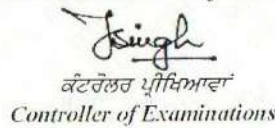 Jsingh
ਕੰਟਰੋਲਰ ਪ੍ਰੀਖਿਆਵਾਂ
Controller of Examinations